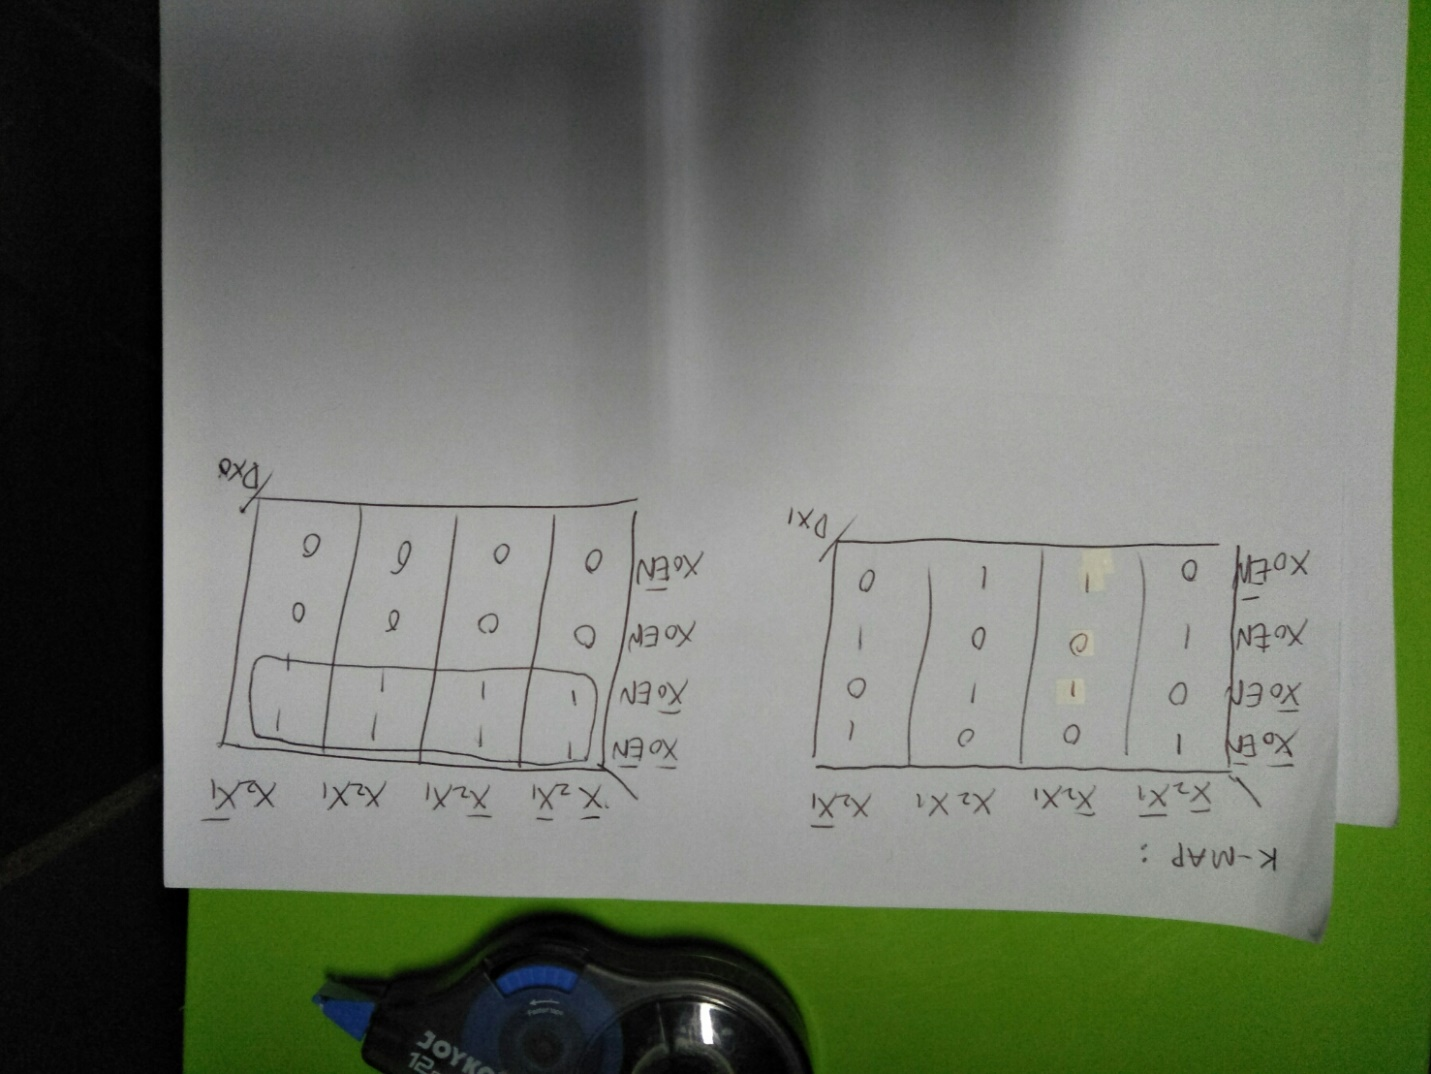 K-MAP :
X̅₂X̅₁ X̅₂X₁ X₂X₁ X₂X̅₁
X̅₀E̅N̅ 1 0 0 1
X̅₀EN 0 1 1 0
X₀EN 1 0 0 1
X₀E̅N̅ 0 1 1 0
DX1
X̅₂X̅₁ X̅₂X₁ X₂X₁ X₂X̅₁
X̅₀E̅N̅ 1 1 1 1
X̅₀EN 1 1 1 1
X₀EN 0 0 0 0
X₀E̅N̅ 0 0 0 0
DX0
JOYKO
12